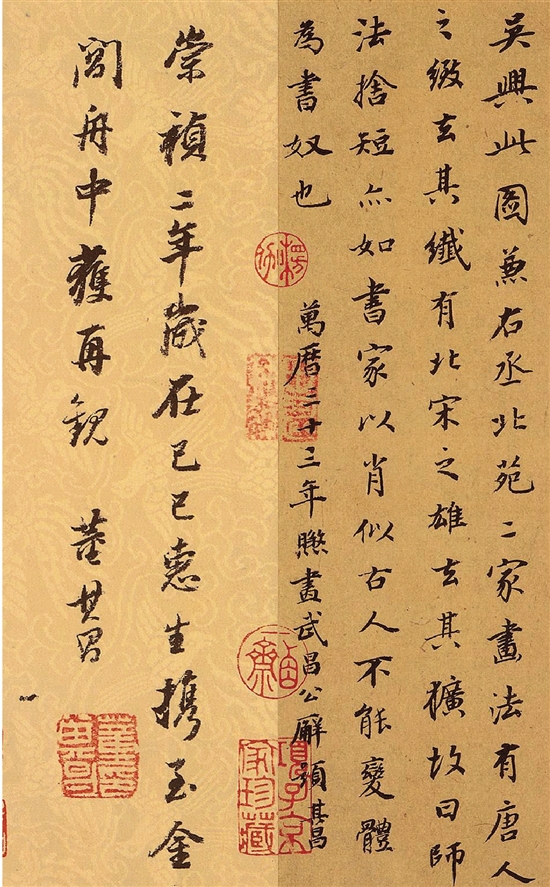 吳興此圖兼右丞北苑二家畫法有唐人
之緻去其纖有北宋之雄去其獷故曰師
法捨短亦如書家以肖似古人不能變體
為書奴也
萬曆三十三年畫武昌公廨題其昌
崇禎二年歲在己巳惠生攜至金
閶舟中獲再觀 董其昌
項子京家珍藏